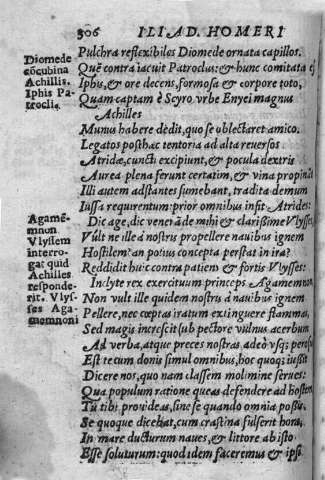 306 ILIAD. HOMERI
Diomede
cõcubina
Achillis.
Iphis Pa-
troclis.
Pulchra reflexibiles Diomede ornata capillos.
Quẽ contra iacuit Patroclus: & hunc comitata
Iphis, & ore decens, formosa & corpore toto,
Quam captam è Scyro vrbe Enyei magnus
Achilles
Munus habere dedit, quo se oblectaret amico.
Legatos posthac tentoria ad alta reuersos
Atridæ, cuncti excipiunt, & pocula dextris
Aurea plena ferunt certatim, & vina propinãt
Illi autem adstantes sumebant, tradita demum
Iussa requirentum: prior omnibus infit Atrides:
Agamẽ-
mnon
Vlyssem
interro-
gat quid
Achilles
responde-
rit. Vlys-
ses Aga-
memnoni
Dic age, dic venerãde mihi & clarissime Vlysse,
Vult ne ille à nostris propellere nauibus ignem
Hostilem? an potius concepta perstat in ira?
Reddidit huic contra patiens & fortis Vlysses:
Inclyte rex exercituum princeps Agamemnon,
Non vult ille quidem nostris à nauibus ignem
Pellere, nec cœptas iratum extinguere flammas,
Sed magis increscit sub pectore vulnus acerbum,
Ad verba, atque preces nostras adeò vsq;
Est tecum donis simul omnibus, hoc quoq; iussit
Dicere nos, quo nam classem molimine serues:
Qua populum ratione queas defendere ab hoste,
Tu tibi prouideas, sine se quando omnia possis,
Se quoque dicebat, cum crastina fulserit hora,
In mare ducturum naues, & littore ab isto
Esse soluturum: quod idem faceremus & ipsi